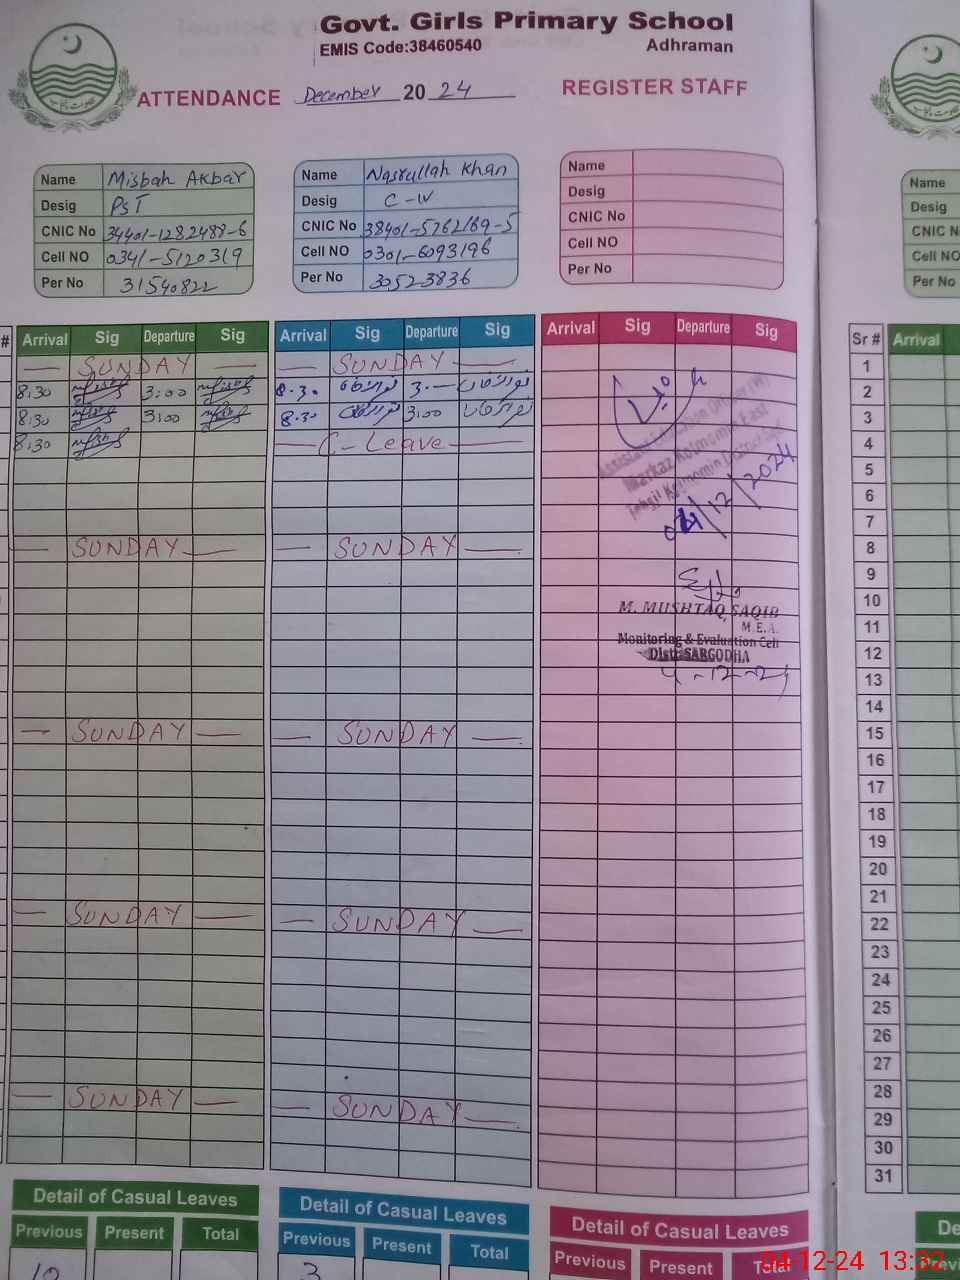 Govt. Girls Primary School
EMIS Code:38460540 Adhraman
ATTENDANCE December 2024 REGISTER STAFF
Name Misbah Akbar
Desig PST
CNIC No 34401-1282488-6
Cell NO 0341-5120319
Per No 31540822
Name Nasrullah Khan
Desig C-IV
CNIC No 38401-5762169-5
Cell NO 0301-6093196
Per No 30523836
Name
Desig
CNIC No
Cell NO
Per No
Name
Desig
CNIC N
Cell NO
Per No
# Arrival Sig Departure Sig Arrival Sig Departure Sig Arrival Sig Departure Sig Sr # Arrival
— SUNDAY — — SUNDAY — 1
8:30 3:00 8.30 3.— 2
8:30 3:00 8.30 3:00 3
8:30 — C-Leave — 4
5
6
7
— SUNDAY — — SUNDAY — 8
9
10
11
12
13
14
— SUNDAY — — SUNDAY — 15
16
17
18
19
20
21
— SUNDAY — — SUNDAY — 22
23
24
25
26
27
28
— SUNDAY — — SUNDAY — 29
30
31
Assistant Education Officer (W)
Markaz Kotmomin East
Tehsil Kotmomin District
04/12/2024
M. MUSHTAQ SAQIB
M.E.A.
Monitoring & Evaluation Cell
Distt: SARGODHA
4-12-24
Detail of Casual Leaves
Previous Present Total
10
Detail of Casual Leaves
Previous Present Total
3
Detail of Casual Leaves
Previous Present Total
De
Previ
04-12-24 13:32